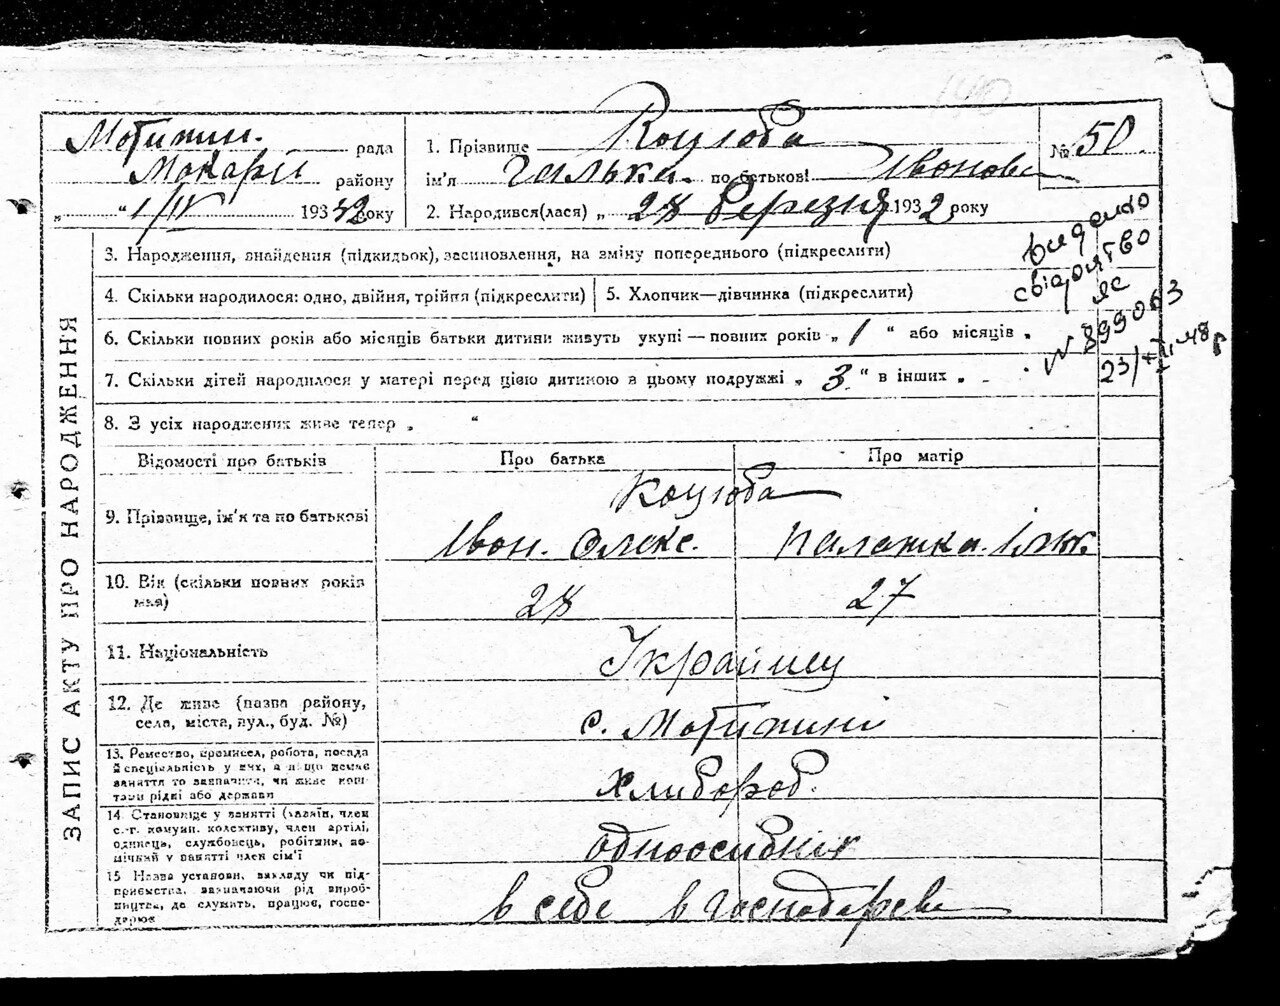 140
Мотижин. рада
Макарів району
„ “ 1/IV 1932 року
1. Прізвище Коцюба
ім'я Галька по батькові Іванова
№ 50
2. Народився(лася) „ 28 березня 1932 року
видано
свідоцтво
ЯС
N 899063
23/XII-48 г
ЗАПИС АКТУ ПРО НАРОДЖЕННЯ
3. Народження, знайдення (підкидьок), засиновлення, на зміну попереднього (підкреслити)
4. Скільки народилося: одно, двійня, трійня (підкреслити)
5. Хлопчик—дівчинка (підкреслити)
6. Скільки повних років або місяців батьки дитини живуть укупі — повних років „ 1 “ або місяців „
7. Скільки дітей народилося у матері перед цією дитиною в цьому подружжі „ 3 “ в інших „
8. З усіх народжених живе тепер „ “
Відомості про батьків
Про батька
Про матір
9. Прізвище, ім'я та по батькові
Коцюба
Іван. Олекс.
Палажка. Ілік.
10. Вік (скільки повних років
має)
28
27
11. Національність
Українец
12. Де живе (назва району,
села, міста, вул., буд. №)
с. Мотижині
13. Ремество, промисел, робота, посада
й спеціальність у них, а якщо немає
заняття то зазначити, чи живе кош-
тами рідні або держави
хлибороб.
14. Становище у занятті (хазяїн, член
с.-г. комун. колективу, член артілі,
одинець, службовець, робітник, по-
мічний у занятті член сім'ї
одноосибник
15 Назва установи, закладу чи під-
приємства, зазначаючи рід вироб-
ництва, де служить, працює, госпо-
дарює
в себе в господарстві